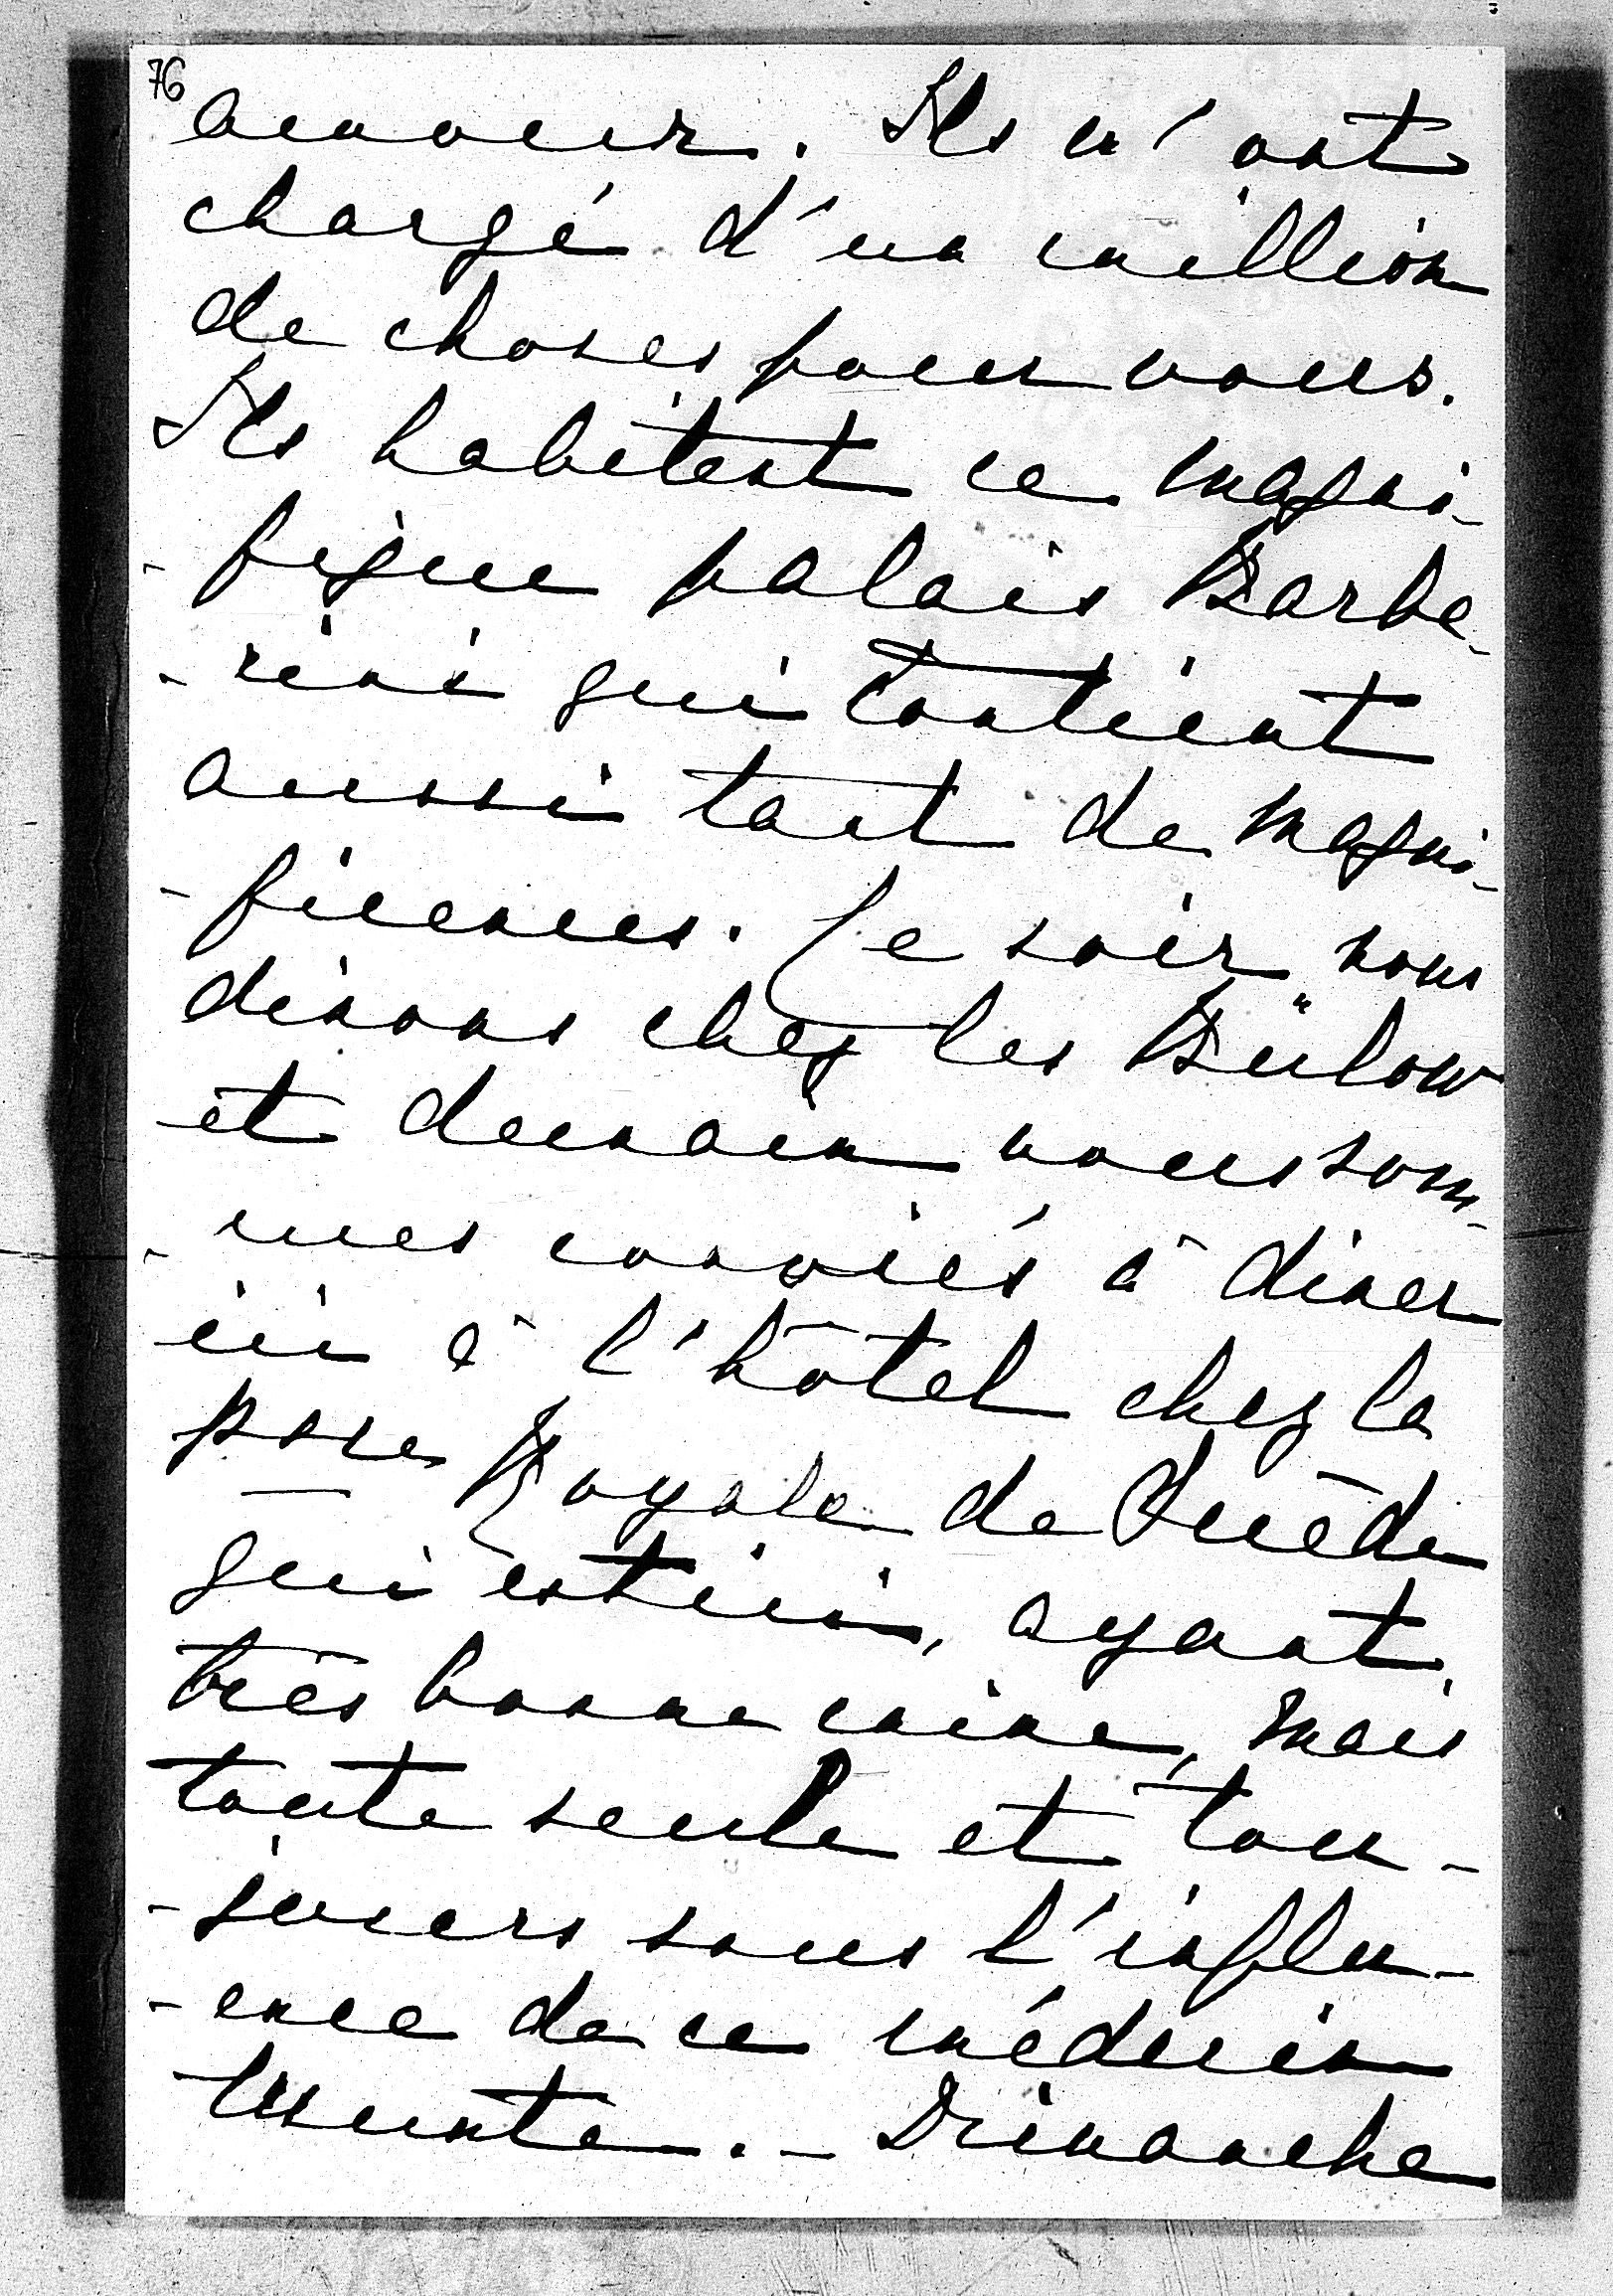 76
amour. Ils m'ont
chargé d'un million
de choses pour vous.
Ils habitent ce magni-
-fique palais Barbe-
-rini qui contient
aussi tant de magni-
-ficences. Ce soir nous
dinons chez les Bülow
et demain nous som-
-mes conviés à diner
ici à l'hôtel chez la
psse Royale de Suède
qui est ici, ayant
très bonne mine, mais
toute seule et tou-
-jours sous l'influ-
-ence de ce médecin
Munte. - Dimanche